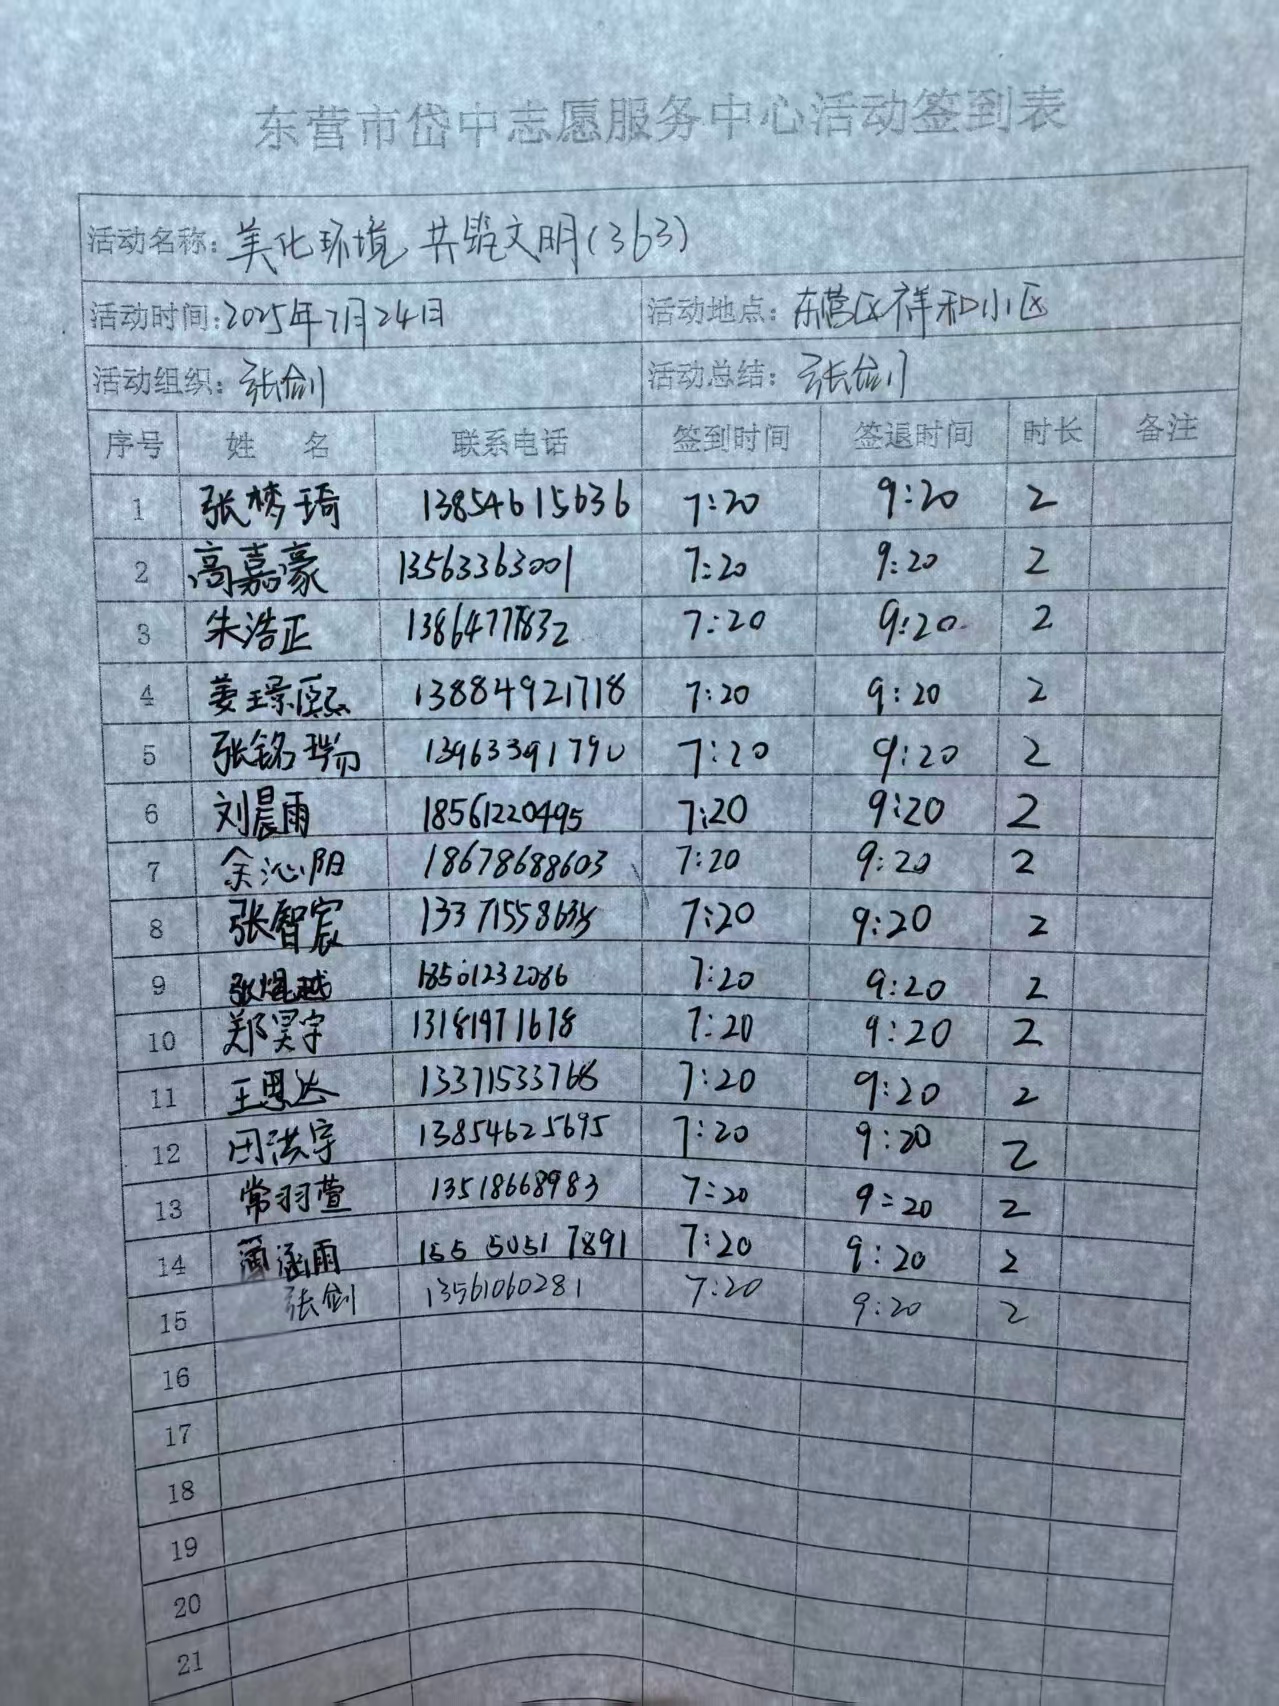 东营市岱中志愿服务中心活动签到表
活动名称: 美化环境 共筑文明(363)
活动时间: 2025年7月24日 活动地点: 东营区祥和小区
活动组织: 张剑 活动总结: 张剑
序号 姓 名 联系电话 签到时间 签退时间 时长 备注
1 张梦琦 13854615636 7:20 9:20 2
2 高嘉豪 13563363001 7:20 9:20 2
3 朱浩正 7:20 9:20 2
4 姜璟熙 13884921718 7:20 9:20 2
5 张铭 13963391790 7:20 9:20 2
6 刘晨雨 18561220495 7:20 9:20 2
7 余沁阳 18678688603 7:20 9:20 2
8 张智宸 7:20 9:20 2
9 7:20 9:20 2
10 郑昊宇 13181971678 7:20 9:20 2
11 王恩达 13371533768 7:20 9:20 2
12 田洪宇 13854625695 7:20 9:20 2
13 常羽萱 13518668983 7:20 9:20 2
14 涵雨 155 5051 7891 7:20 9:20 2
15 张剑 13561060281 7:20 9:20 2
16
17
18
19
20
21